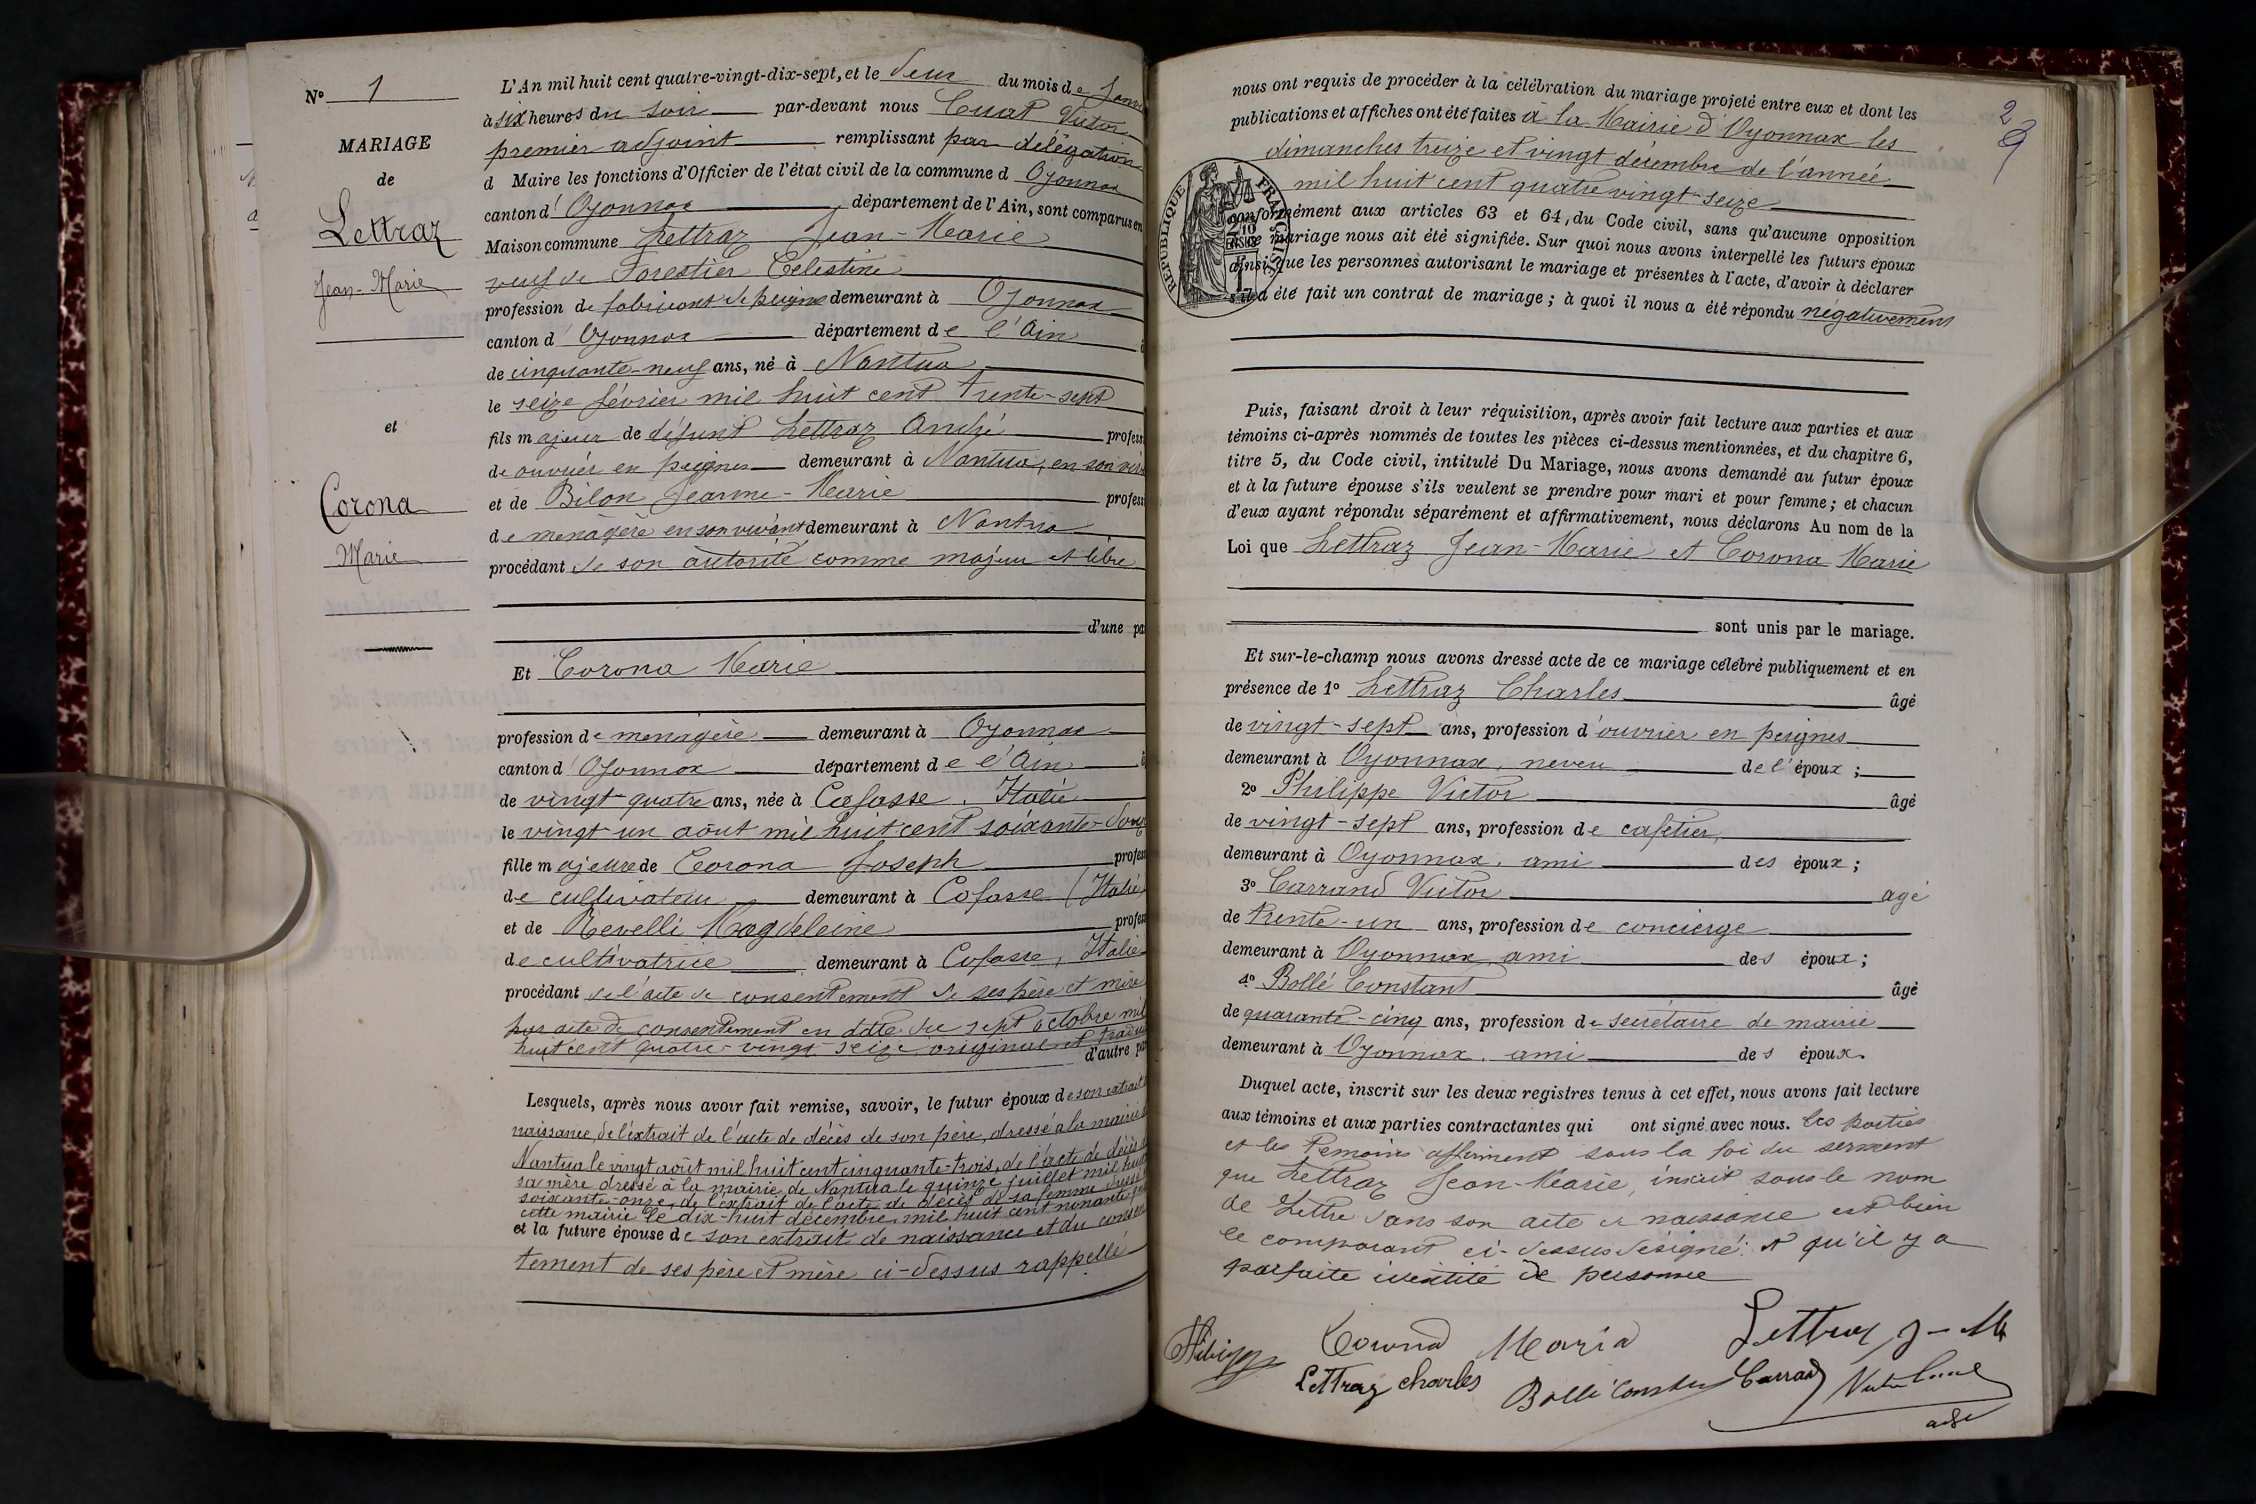 N° 1
MARIAGE
de
Lettraz
Jean-Marie
et
Corona
Marie
L'An mil huit cent quatre-vingt-dix-sept, et le deux du mois de Janv
à six heures du soir par-devant nous Cuat Victor
premier adjoint remplissant par délégation
d Maire les fonctions d'Officier de l'état civil de la commune d Oyonnax
canton d' Oyonnax département de l'Ain, sont comparus en
Maison commune Lettraz Jean-Marie
veuf de Forestier Célestine
profession de fabricant de peignes demeurant à Oyonnax
canton d' Oyonnax département de l'Ain
de cinquante-neuf ans, né à Nantua
le seize février mil huit cent trente-sept
fils majeur de défunt Lettraz André profess
de ouvrier en peignes demeurant à Nantua, en son viv
et de Bilon Jeanne-Marie profess
de menagère en son vivant demeurant à Nantua
procédant de son autorité comme majeur et libre
d'une pa
Et Corona Marie
profession de menagère demeurant à Oyonnax
canton d' Oyonnax département de l'Ain
de vingt-quatre ans, née à Cafasse, Italie
le vingt-un août mil huit cent soixante-douze
fille majeure de Corona Joseph profess
de cultivateur demeurant à Cafasse (Italie
et de Revelli Magdeleine profess
de cultivatrice demeurant à Cafasse, Italie
procédant de l'acte de consentement de ses père et mère
par acte de consentement en date du sept octobre mil
huit cent quatre-vingt-seize original et traduc
d'autre par
Lesquels, après nous avoir fait remise, savoir, le futur époux de son extrait
naissance, de l'extrait de l'acte de décès de son père, dressé à la mairie
Nantua le vingt août mil huit cent cinquante-trois, de l'acte de décès de
sa mère dressé à la mairie de Nantua le quinze juillet mil huit
soixante-onze, de l'extrait de l'acte de décès de sa femme dressé
cette mairie le dix-huit décembre mil huit cent nonante
et la future épouse de son extrait de naissance et du consen
tement de ses père et mère ci-dessus rappellé
2
nous ont requis de procéder à la célébration du mariage projeté entre eux et dont les
publications et affiches ont été faites à la Mairie d'Oyonnax les
dimanches treize et vingt décembre de l'année
mil huit cent quatre vingt-seize
RÉPUBLIQUE FRANÇAISE
2/10 EN SUS
conformément aux articles 63 et 64, du Code civil, sans qu'aucune opposition
ce mariage nous ait été signifiée. Sur quoi nous avons interpellé les futurs époux
ainsi que les personnes autorisant le mariage et présentes à l'acte, d'avoir à déclarer
s'il a été fait un contrat de mariage; à quoi il nous a été répondu négativement
Puis, faisant droit à leur réquisition, après avoir fait lecture aux parties et aux
témoins ci-après nommés de toutes les pièces ci-dessus mentionnées, et du chapitre 6,
titre 5, du Code civil, intitulé Du Mariage, nous avons demandé au futur époux
et à la future épouse s'ils veulent se prendre pour mari et pour femme; et chacun
d'eux ayant répondu séparément et affirmativement, nous déclarons Au nom de la
Loi que Lettraz Jean-Marie et Corona Marie
sont unis par le mariage.
Et sur-le-champ nous avons dressé acte de ce mariage célébré publiquement et en
présence de 1° Lettraz Charles âgé
de vingt-sept ans, profession d'ouvrier en peignes
demeurant à Oyonnax, neveu de l'époux;
2° Philippe Victor âgé
de vingt-sept ans, profession de cafetier,
demeurant à Oyonnax, ami des époux;
3° Carrand Victor agé
de trente-un ans, profession de concierge
demeurant à Oyonnax, ami des époux;
4° Bollé Constant âgé
de quarante-cinq ans, profession de secrétaire de mairie
demeurant à Oyonnax, ami des époux.
Duquel acte, inscrit sur les deux registres tenus à cet effet, nous avons fait lecture
aux témoins et aux parties contractantes qui ont signé avec nous. les parties
et les témoins affirment sous la foi du serment
que Lettraz Jean-Marie, inscrit sous le nom
de Lettre dans son acte de naissance est bien
le comparant ci-dessus désigné: et qu'il y a
parfaite identité de personne
Corona Maria
Lettraz J-M
Lettraz charles
Bollé Constant
Carrand
Victor Cuat
adj